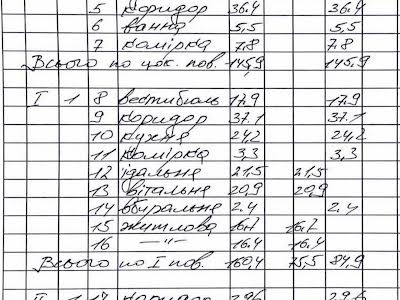 5 коридор 36.4 36.4
6 ванна 5,5 5,5
7 комірка 7,8 7.8
Всього по цок. пов. 145,9 145,9
I 1 8 вестибюль 17,9 17,9
9 коридор 37.1 37.1
10 кухня 24,2 24,2
11 комірка 3,3 3.3
12 їдальня 21,5 21,5
13 вітальня 20,9 20,9
14 вбиральня 2,4 2,4
15 житлова 16,7 16,7
16 —"— 16.4 16.4
Всього по I пов. 160,4 75,5 84,9
II 1 17 коридор